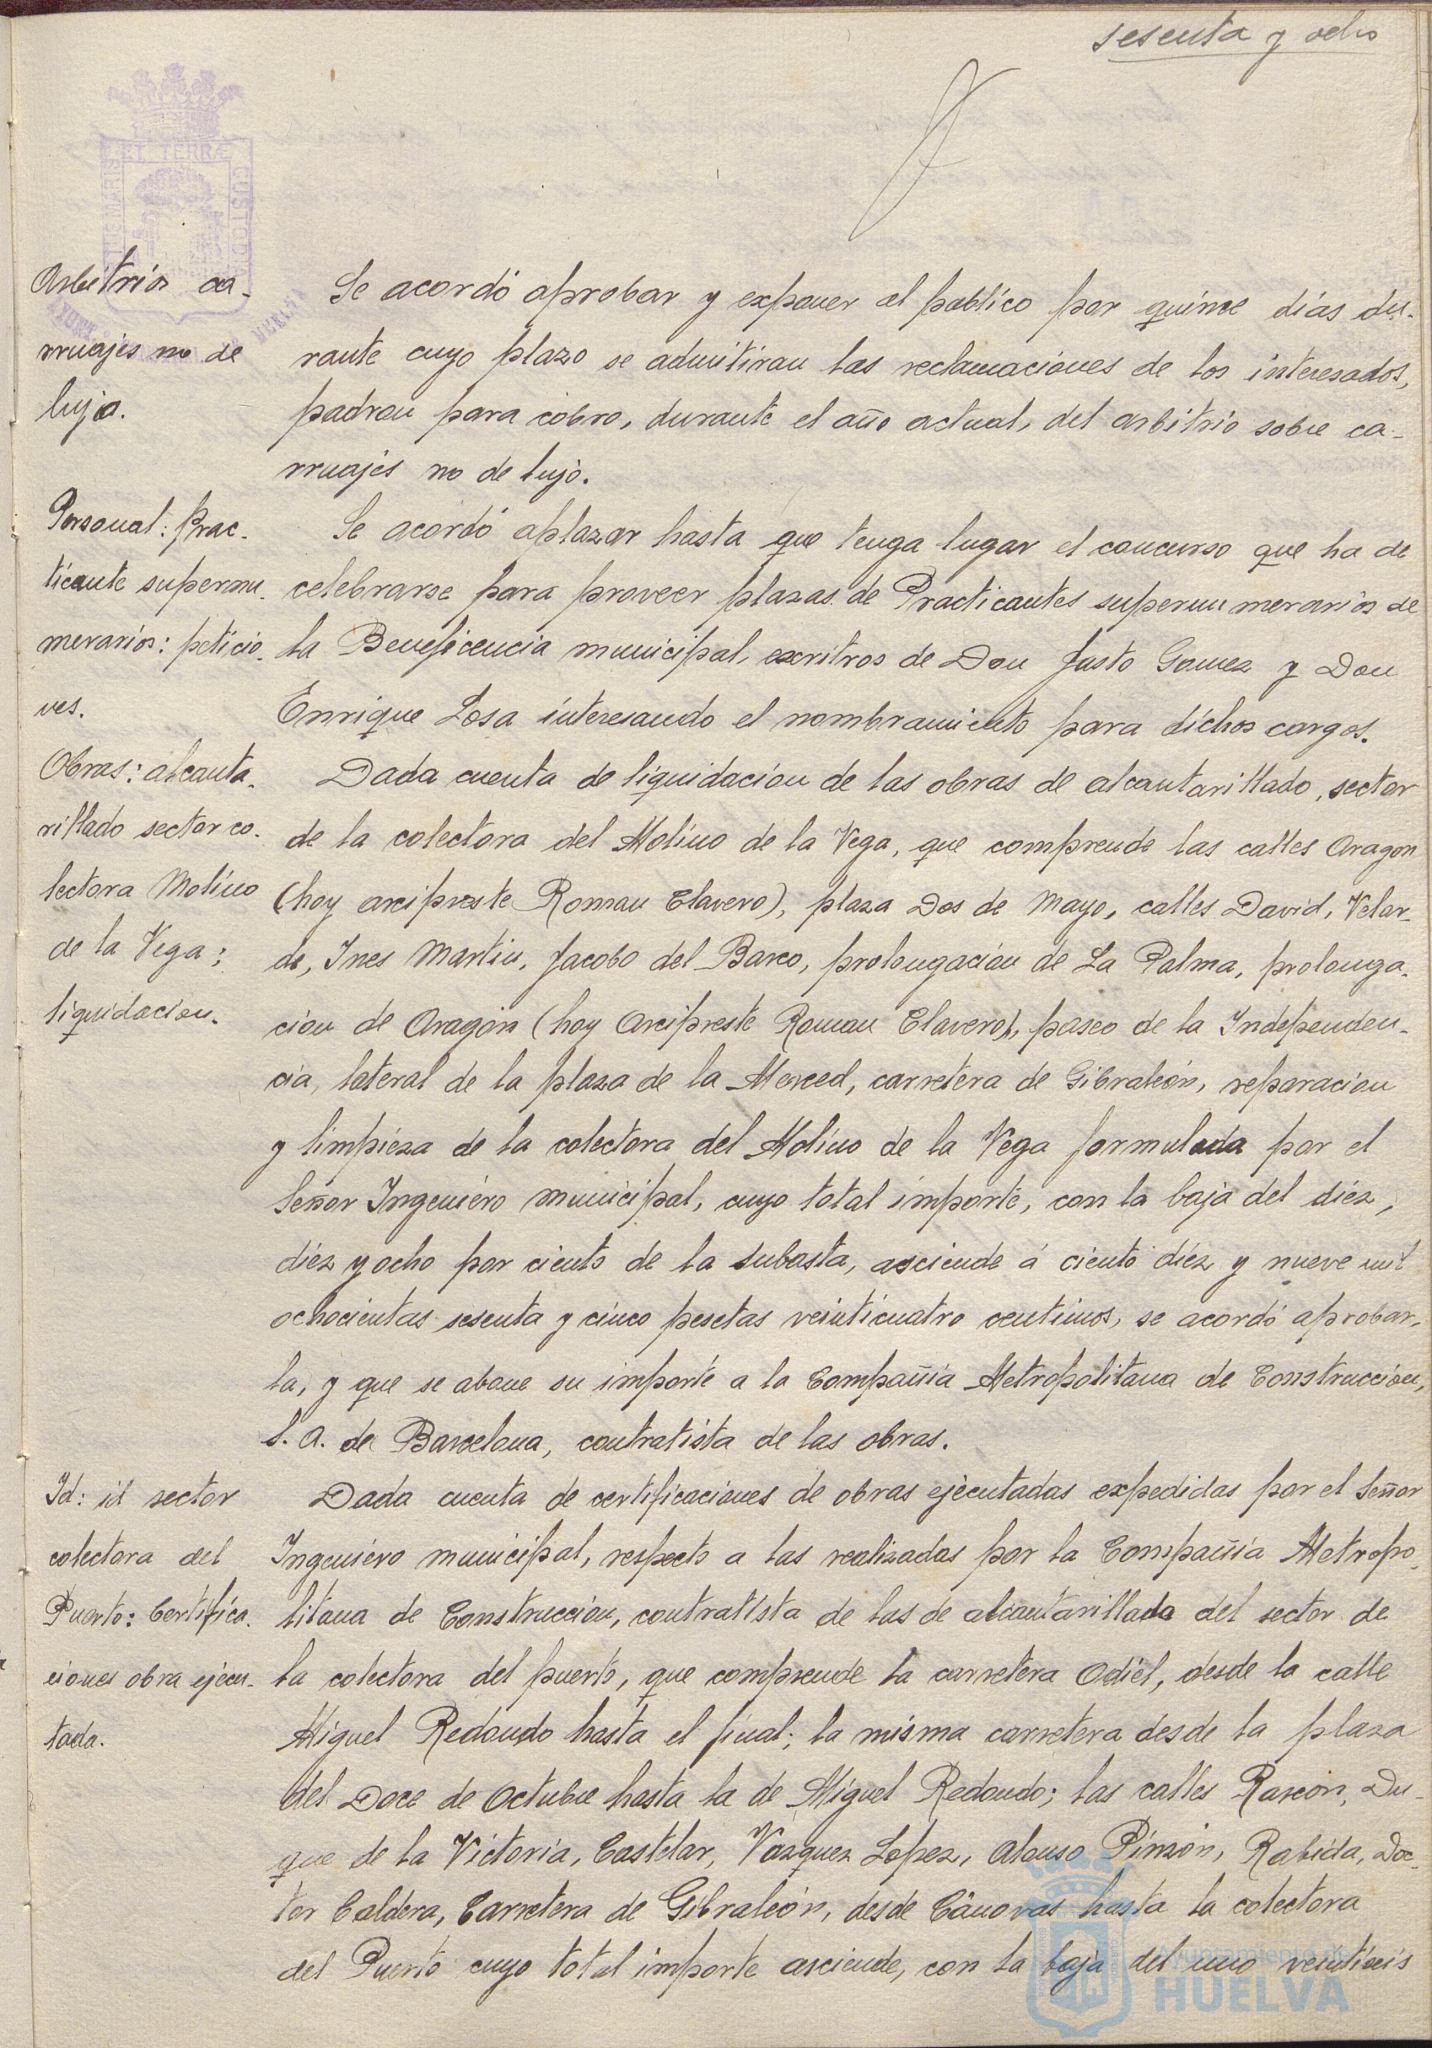 sesenta y ocho
PORTUS MARIS ET TERRÆ CUSTODIA
Arbitrios ca-
rruajes no de
lujo.
Se acordó aprobar y exponer al público por quince días du-
rante cuyo plazo se admitiran las reclamaciones de los interesados,
padron para cobro, durante el año actual, del arbitrio sobre ca-
rruajes no de lujo.
Personal: Prac-
ticante supernu-
merarios: peticio-
nes.
Se acordó aplazar hasta que tenga lugar el concurso que ha de
celebrarse para proveer plazas de Practicantes supernumerarios de
la Beneficencia municipal, escritos de Don Justo Gomez y Don
Enrique Losa interesando el nombramiento para dichos cargos.
Obras: alcanta-
rillado sector co-
lectora Molino
de la Vega:
liquidacion.
Dada cuenta de liquidacion de las obras de alcantarillado, sector
de la colectora del Molino de la Vega, que comprende las calles Aragon
(hoy arcipreste Roman Clavero), plaza Dos de Mayo, calles David, Velar-
de, Ines Martin, Jacobo del Barco, prolongación de La Palma, prolonga-
cion de Aragón (hoy Arcipreste Roman Clavero), paseo de la Independen-
cia, lateral de la plaza de la Merced, carretera de Gibraleón, reparacion
y limpieza de la colectora del Molino de la Vega formulada por el
Señor Ingeniero municipal, cuyo total importe, con la baja del diez,
diez y ocho por ciento de la subasta, asciende á ciento diez y nueve mil
ochocientas sesenta y cinco pesetas veinticuatro centimos, se acordó aprobar-
la, y que se abone su importe a la Compañia Metropolitana de Construccion,
S. A. de Barcelona, contratista de las obras.
Id: id sector
colectora del
Puerto: Certifica-
ciones obra ejecu-
tada.
Dada cuenta de certificaciones de obras ejecutadas expedidas por el Señor
Ingeniero municipal, respecto a las realizadas por la Compañia Metropo-
litana de Construccion, contratista de las de alcantarillado del sector de
la colectora del puerto, que comprende la carretera Odiel, desde la calle
Miguel Redondo hasta el final; la misma carretera desde la plaza
del Doce de Octubre hasta la de Miguel Redondo; las calles Rascon, Du-
que de la Victoria, Castelar, Vazquez Lopez, Alonso Pinzón, Rabida, Doc-
tor Caldera, Carretera de Gibraleón, desde Cánovas hasta la colectora
del Puerto cuyo total importe asciende, con la baja del uno veintiseis
Ayuntamiento de
HUELVA